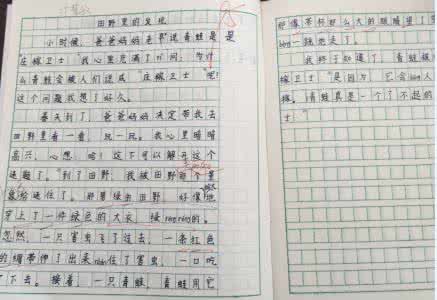 田野里的发现
小时候，爸爸妈妈老师说青蛙是
庄稼卫士，我心里充满了问：为什
么青蛙会被人们说成"庄稼卫士"呢！
这个问题我想了好久。
春天到了，爸爸妈妈决定带我去
田野里看一看，玩一玩。我心里暗暗
高兴，心想：哈！这下可以解开这个
谜题了。"到了田野，我被田野
给迷住了。那碧绿的田野，好像
穿上了一件绿色的大衣，绿
忽然，一只害虫飞了过去，一条红色
的绸带伸了出来 住了害虫，一口吃
了下去。接着，一只青蛙，青蛙用它
那像茶杯那么大的眼睛望了
跳走了。
我终于知道了，青蛙被
稼卫士"是因为，它会
稼。青蛙真是一个了不起的
士"